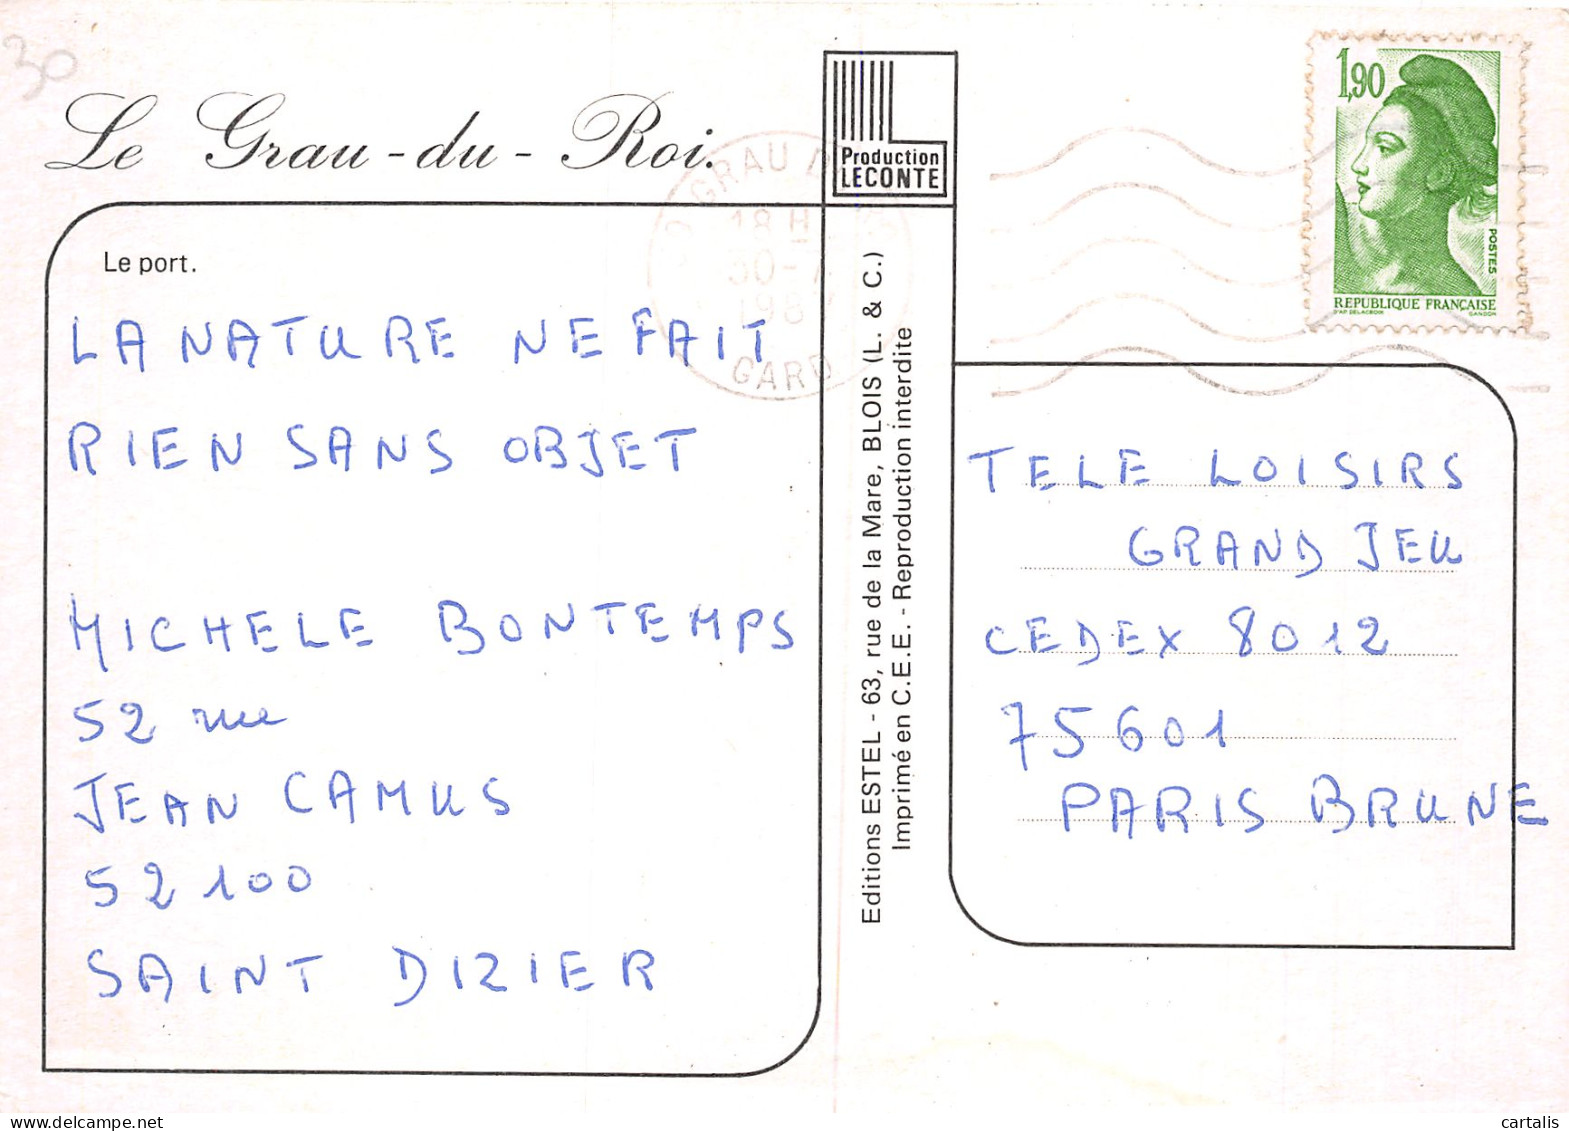 30
Le Grau-du-Roi.
Production
LECONTE
1,90
POSTES
REPUBLIQUE FRANÇAISE
D'AP DELACROIX GANDON
GRAU
18 H
30-7
198
GARD
Le port.
LA NATURE NE FAIT
RIEN SANS OBJET
MICHELE BONTEMPS
52 rue
JEAN CAMUS
52100
SAINT DIZIER
Editions ESTEL - 63, rue de la Mare, BLOIS (L. & C.)
Imprimé en C.E.E. - Reproduction interdite
TELE LOISIRS
GRAND JEU
CEDEX 8012
75601
PARIS BRUNE
cartalis